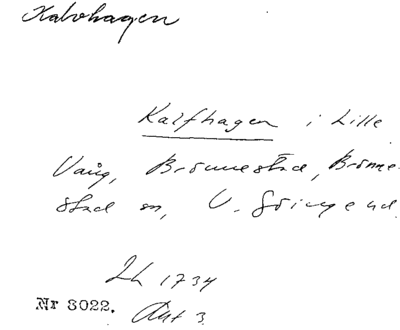 Kalvhagen
Kalfhagen i Lille
Vång, Brönnestad, Brönne-
stad sn, V. Göinge hd.
Lh 1734
Nr 3022. Akt 3